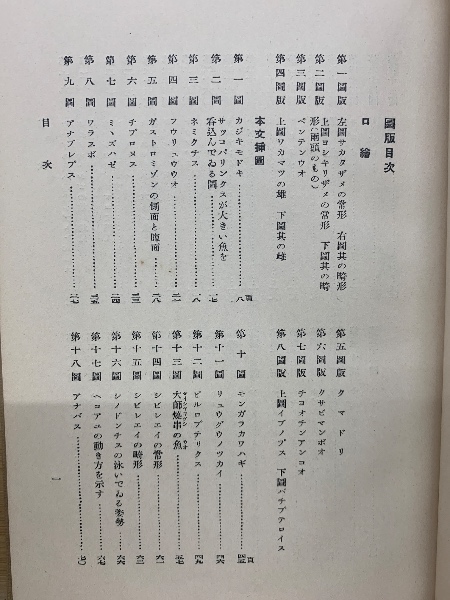 圖版目次
口繪
第一圖版 左圖サカタザメの常形 右圖其の畸形
第二圖版 上圖ヨシキリザメの常形 下圖其の畸
形(兩頭のもの)
第三圖版 ベンテンウオ
第四圖版 上圖ワカマツの雄 下圖其の雌
第五圖版 クマドリ
第六圖版 クサビマンボオ
第七圖版 チヨオチンアンコオ
第八圖版 上圖イプノプス 下圖バチプテロイス
本文挿圖
第一圖 カジキモドキ 八頁
第二圖 サツコパリンクスが大きい魚を
呑込んでゐる圖 一七
第三圖 ネミクチス 一八
第四圖 フウリュウウオ
第五圖 ガストロミゾンの側面と腹面 二八
第六圖 チプロメス
第七圖 ミヽズハゼ 二四
第八圖 ワラスボ 二五
第九圖 アナブレプス 二七
第十圖 モンガラカワハギ 四五頁
第十一圖 リュウグウノツカイ 四六
第十二圖 ピルロプテリクス 四九
第十三圖 大師燒串の魚 五七
第十四圖 シビレエイの常形 六一
第十五圖 シビレエイの畸形 六三
第十六圖 シノドンチスの泳いでゐる姿勢 六六
第十七圖 ヘコアユの動き方を示す 六七
第十八圖 アナバス 七〇
目次
一